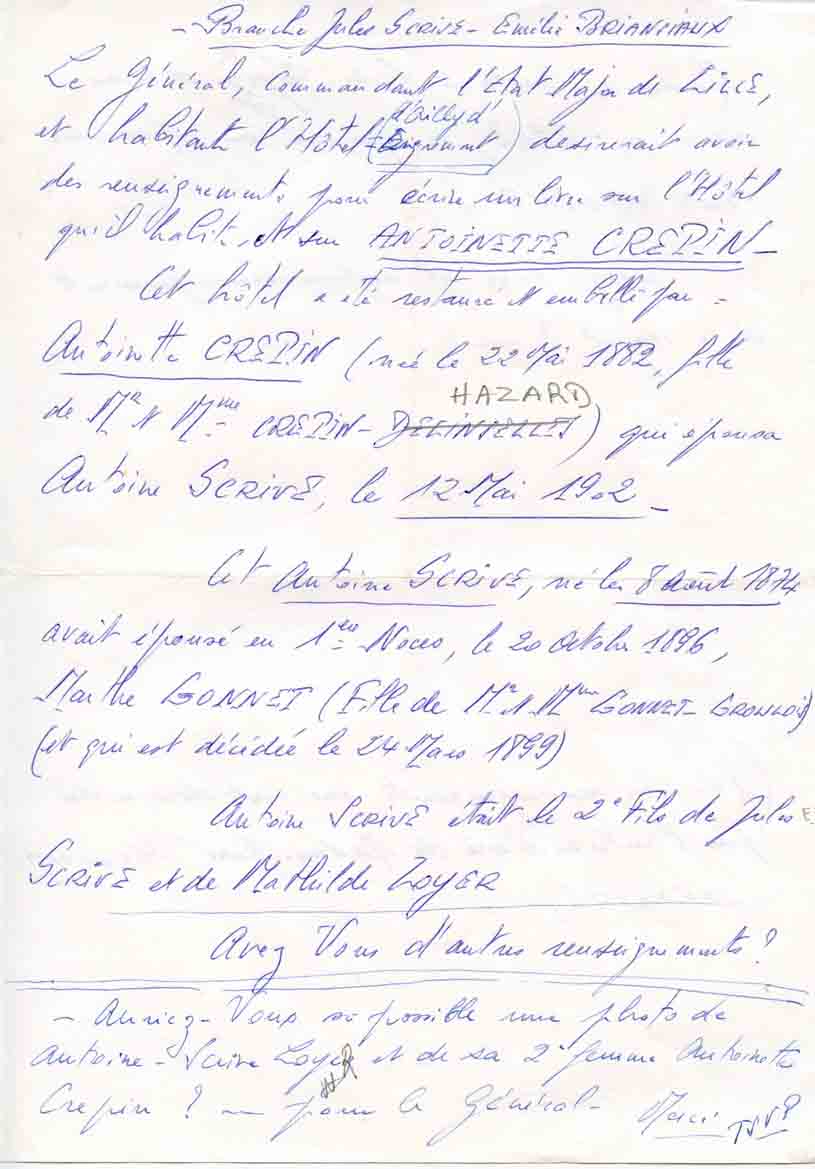 - Branche Jules SCRIVE - Emilie BRIANSIAUX
Le Général, commandant l'Etat Major de LILLE,
d'Ailly d'
et habitant l'Hôtel (Aigremont) desirerait avoir
des renseignements pour écrire un livre sur l'Hôtel
qu'il habite, et sur ANTOINETTE CREPIN -
Cet hôtel a été restauré et embelli par =
Antoinette CREPIN (née le 22 Mai 1882, fille
HAZARD
de Mr et Mme CREPIN - ) qui épousa
Antoine SCRIVE, le 12 Mai 1902 -
Cet Antoine SCRIVE, né le 8 août 1874
avait épousé en 1eres Noces, le 20 octobre 1896,
Marthe GONNET (Fille de Mr et Mme GONNET -
(et qui est décédée le 24 Mars 1899)
Antoine SCRIVE était le 2e Fils de Jules E
SCRIVE et de Mathilde LOYER
Avez Vous d'autres renseignements ?
- Auriez-Vous si possible une photo de
Antoine - Scrive Loyer et de sa 2e femme Antoinette
Crepin ? - pour le Général - Merci